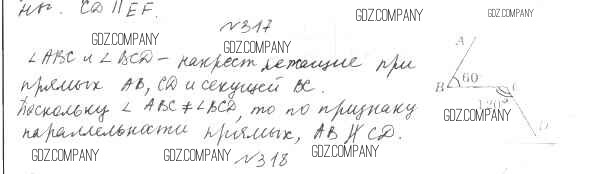 нт. CD || EF.
GDZ.COMPANY GDZ.COMPANY
N317
GDZ.COMPANY
∠ABC и ∠BCD - накрест лежащие при
прямых AB, CD и секущей BC.
Поскольку ∠ABC ≠ ∠BCD, то по признаку
параллельности прямых, AB ∦ CD.
A
B 60° C
120°
D
GDZ.COMPANY
GDZ.COMPANY GDZ.COMPANY GDZ.COMPANY
N318